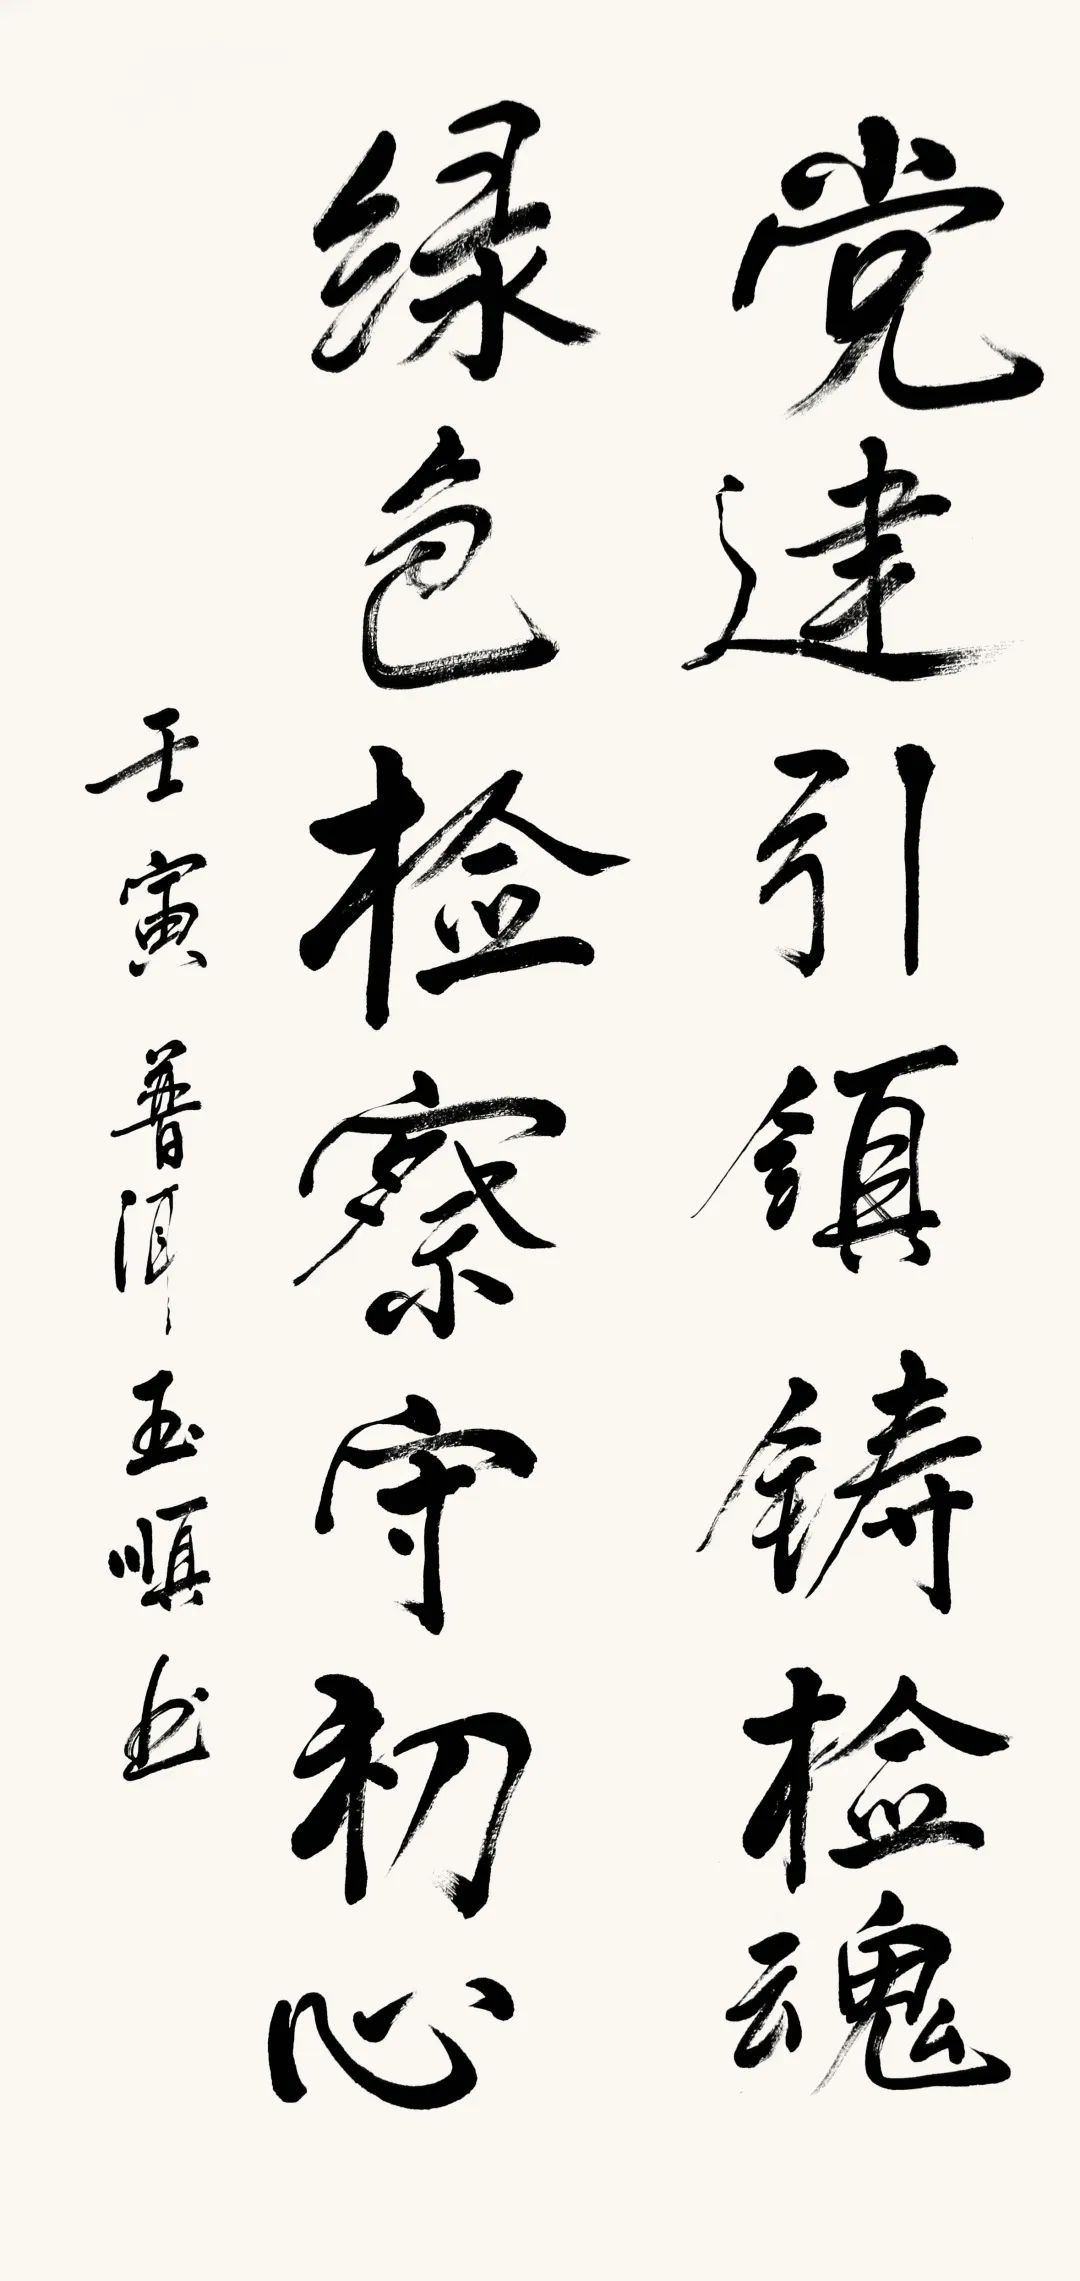 党建引領铸检魂
绿色检察守初心
壬寅 普洱 玉順书